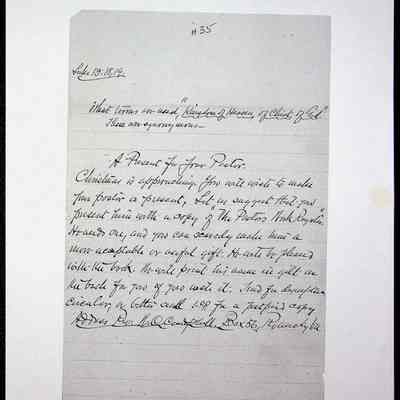 #35
Luke 13:18,19.
What terms are used, "Kingdom of Heaven, of Christ, of God"
These are synonymous—
A Present for Your Pastor.
Christmas is approaching. You will wish to make
your pastor a present, Let us suggest that you
present him with a copy of "The Pastor's Work Register"
He needs one, and you can scarcely make him a
more acceptable or useful gift. He will be pleased
with the book. We will print his name in gilt on
the back for you if you wish it. Send for descriptive
circular, or better send for a postpaid copy
Address Rev.